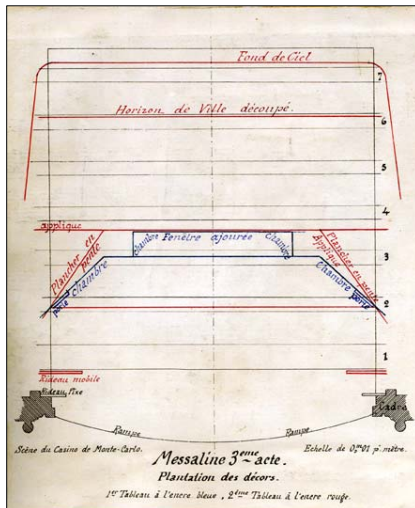 Fond de Ciel
7
Horizon de Ville découpé.
6
5
4
applique
Plancher en pente
chambre Fenêtre ajourée Chambre
Applique
Plancher en pente
3
Chambre
porte
Chambre
porte
2
1
Rideau mobile
Rideau fixe
Cadre
Rampe
Rampe
Scène du Casino de Monte-Carlo.
Echelle de 0,m01 p. mètre.
Messaline 3ème acte.
Plantation des décors.
1er Tableau à l'encre bleue, 2ème Tableau à l'encre rouge.